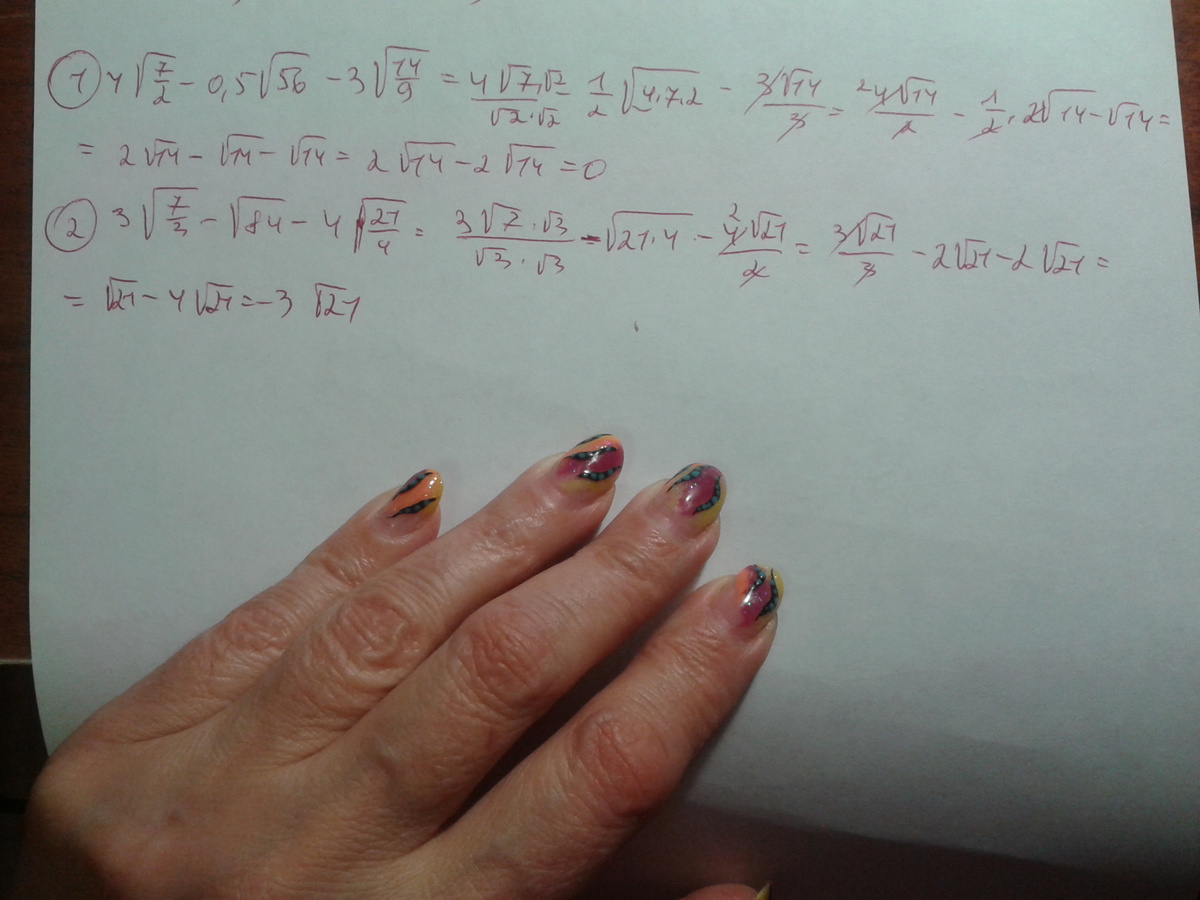 ① 4√(7/2) − 0,5√56 − 3√(14/9) = (4√7·√2)/(√2·√2) 1/2 √(4·7·2) − (3√14)/3 = (²4√14)/2 − 1/2 · 2√14 − √14 =
= 2√14 − √14 − √14 = 2√14 − 2√14 = 0
② 3√(7/3) − √84 − 4√(21/4) = (3√7·√3)/(√3·√3) − √(21·4) − (²4√21)/2 = (3√21)/3 − 2√21 − 2√21 =
= √21 − 4√21 = −3√21